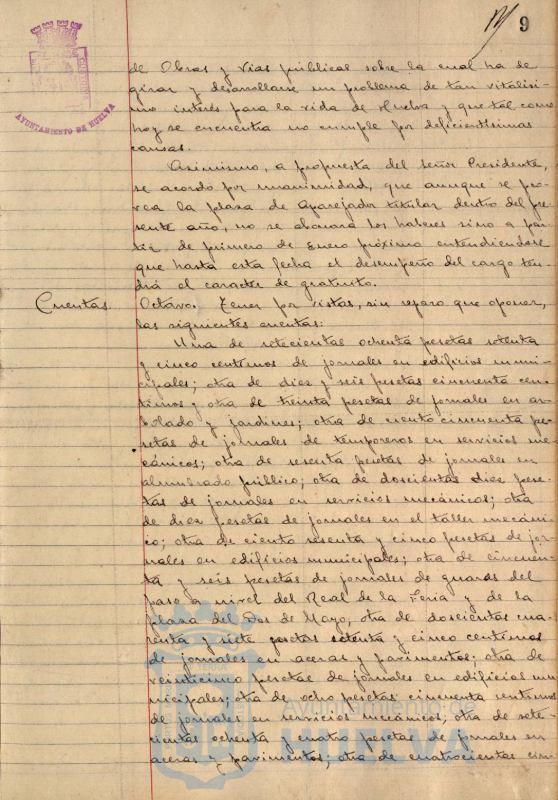 9
AYUNTAMIENTO DE HUELVA
de Obras y Vias públicas sobre la cual ha de
girar y desarrollarse un problema de tan vitalisi-
mo interés para la vida de Huelva y que tal como
hoy se encuentra no cumple por deficientísimas
causas.
Asimismo, a propuesta del Señor Presidente,
se acordo por unanimidad, que aunque se pro-
vea la plaza de Aparejador titular dentro del pre-
sente año, no se abonará los haberes sino a par-
tir de primero de Enero próximo entendiendose
que hasta esta fecha el desempeño del cargo ten-
drá el caracter de gratuito.
Cuentas. Octavo. Tener por vistas, sin reparo que oponer,
las siguientes cuentas:
Una de setecientas ochenta pesetas setenta
y cinco centimos de jornales en edificios muni-
cipales; otra de diez y seis pesetas cincuenta cen-
timos y otra de treinta pesetas de jornales en ar-
bolado y jardines; otra de ciento cincuenta pe-
setas de jornales de temporeros en servicios me-
cánicos; otra de sesenta pesetas de jornales en
alumbrado público; otra de doscientas diez pese-
tas de jornales en servicios mecánicos; otra
de diez pesetas de jornales en el taller mecáni-
co; otra de ciento sesenta y cinco pesetas de jor-
nales en edificios municipales; otra de cincuen-
ta y seis pesetas de jornales de guarda del
paso a nivel del Real de la Feria y de la
plaza del Dos de Mayo; otra de doscientas cua-
renta y siete pesetas setenta y cinco centimos
de jornales en aceras y pavimentos; otra de
veinticinco pesetas de jornales en edificios mu-
nicipales; otra de ocho pesetas cincuenta centimos
de jornales en servicios mecánicos; otra de sete-
cientas ochenta y cuatro pesetas de jornales en
aceras y pavimentos; otra de cuatrocientas cin-
Ayuntamiento de
HUELVA